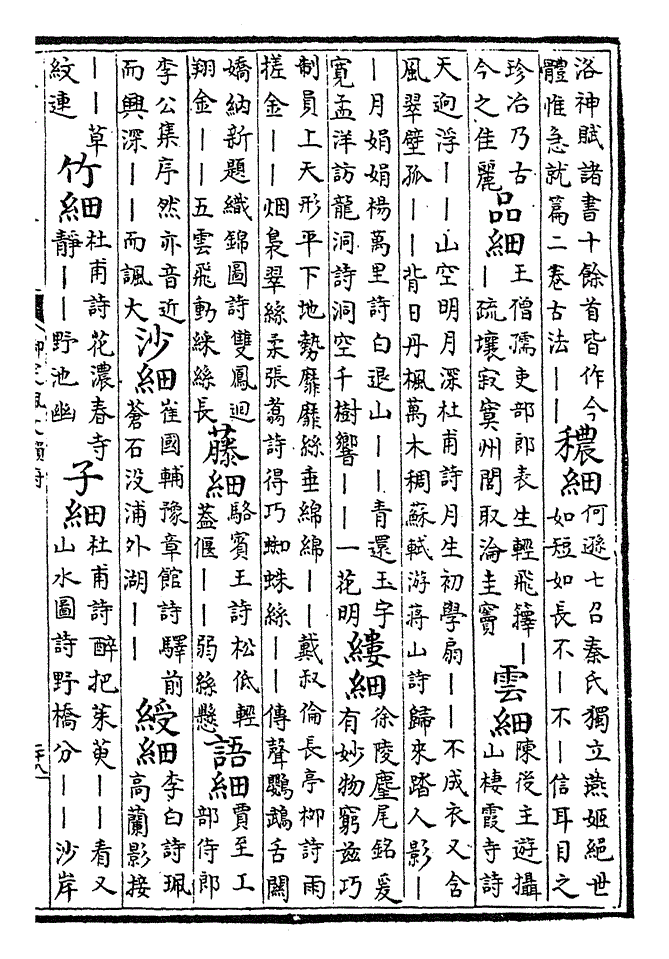 洛神賦諸書十餘首皆作今
體惟急就篇二卷古法——
穠細
何遜七召秦氏獨立燕姬絕世
如短如長不—不—信耳目之
珍冶乃古
今之佳麗
品細
王僧孺吏部郎表生輕飛籜—
—疏壤寂寞州閭取淪圭竇
雲細
陳後主遊攝
山棲霞寺詩
天迥浮——山空明月深杜甫詩月生初學扇——不成衣又含
風翠壁孤——背日丹楓萬木稠蘇軾游蔣山詩歸來踏人影—
—月娟娟楊萬里詩白退山——青還玉宇
寛孟洋訪龍洞詩洞空千樹響——一花明
縷細
徐陵麈尾銘爰
有妙物窮兹巧
制員上天形平下地勢靡靡絲垂綿綿——戴叔倫長亭柳詩雨
搓金——烟裊翠絲柔張翥詩得巧蜘蛛絲——傳聲鸚鵡舌關
嬌納新題織錦圖詩雙鳳迴
翔金——五雲飛動綵絲長
藤細
駱賓王詩松低輕
蓋偃——弱絲懸
語細
賈至工
部侍郎
李公集序然亦音近
而興深——而諷大
沙細
崔國輔豫章館詩驛前
蒼石没浦外湖——
綬細
李白詩珮
高蘭影接
——草
紋連
竹細
杜甫詩花濃春寺
靜——野池幽
子細
杜甫詩醉把茱萸——看又
山水圖詩野橋分——沙岸